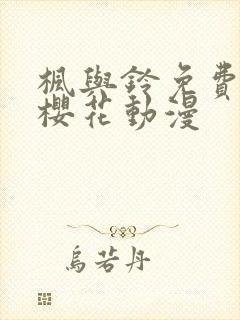 楓與鈴免費
櫻花動漫
烏若丹